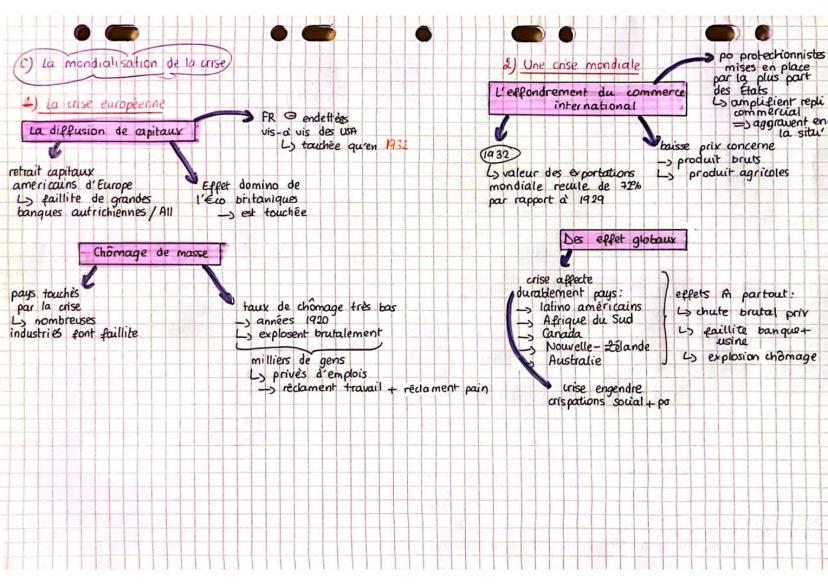 C) La mondialisation de la crise
1) La crise européenne
La diffusion de capitaux
FR ⊖ endettées
vis-à vis des USA
↳ touchée qu'en 1932
retrait capitaux
americains d'Europe
↳ faillite de grandes
banques autrichiennes / All
Effet domino de
l'€co britaniques
→ est touchée
Chômage de masse
pays touchés
par la crise
↳ nombreuses
industries font faillite
taux de chômage très bas
→ années 1920
↳ explosent brutalement
milliers de gens
↳ privés d'emplois
→ réclament travail + réclament pain
2) Une crise mondiale
L'effondrement du commerce
international
po protectionnistes
mises en place
par la plus part
des États
↳ amplifient repli
commercial
⇒ aggravent en
la situ°
1932
↳ valeur des exportations
mondiale recule de 72%
par rapport à 1929
baisse prix concerne
→ produit bruts
↳ produit agricoles
Des effet globaux
crise affecte
durablement pays :
→ latino américains
→ Afrique du Sud
→ Canada
→ Nouvelle-Zélande
→ Australie
effets m̂ partout :
↳ chute brutal prix
↳ faillite banque +
usine
↳ explosion chômage
crise engendre
crispations social + po